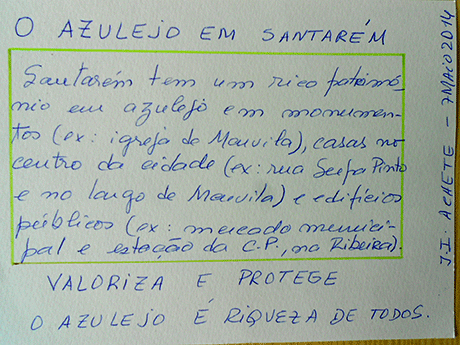 O AZULEJO EM SANTARÉM
Santarém tem um rico patrimó-
nio em azulejo em monumen-
tos (ex: igreja de Marvila), casas no
centro da cidade (ex: rua Serpa Pinto
e no largo de Marvila) e edifícios
públicos (ex: mercado munici-
pal e estação da C.P., na Ribeira).
VALORIZA E PROTEGE
O AZULEJO É RIQUEZA DE TODOS.
J.I. ACHETE - 7MAIO2014